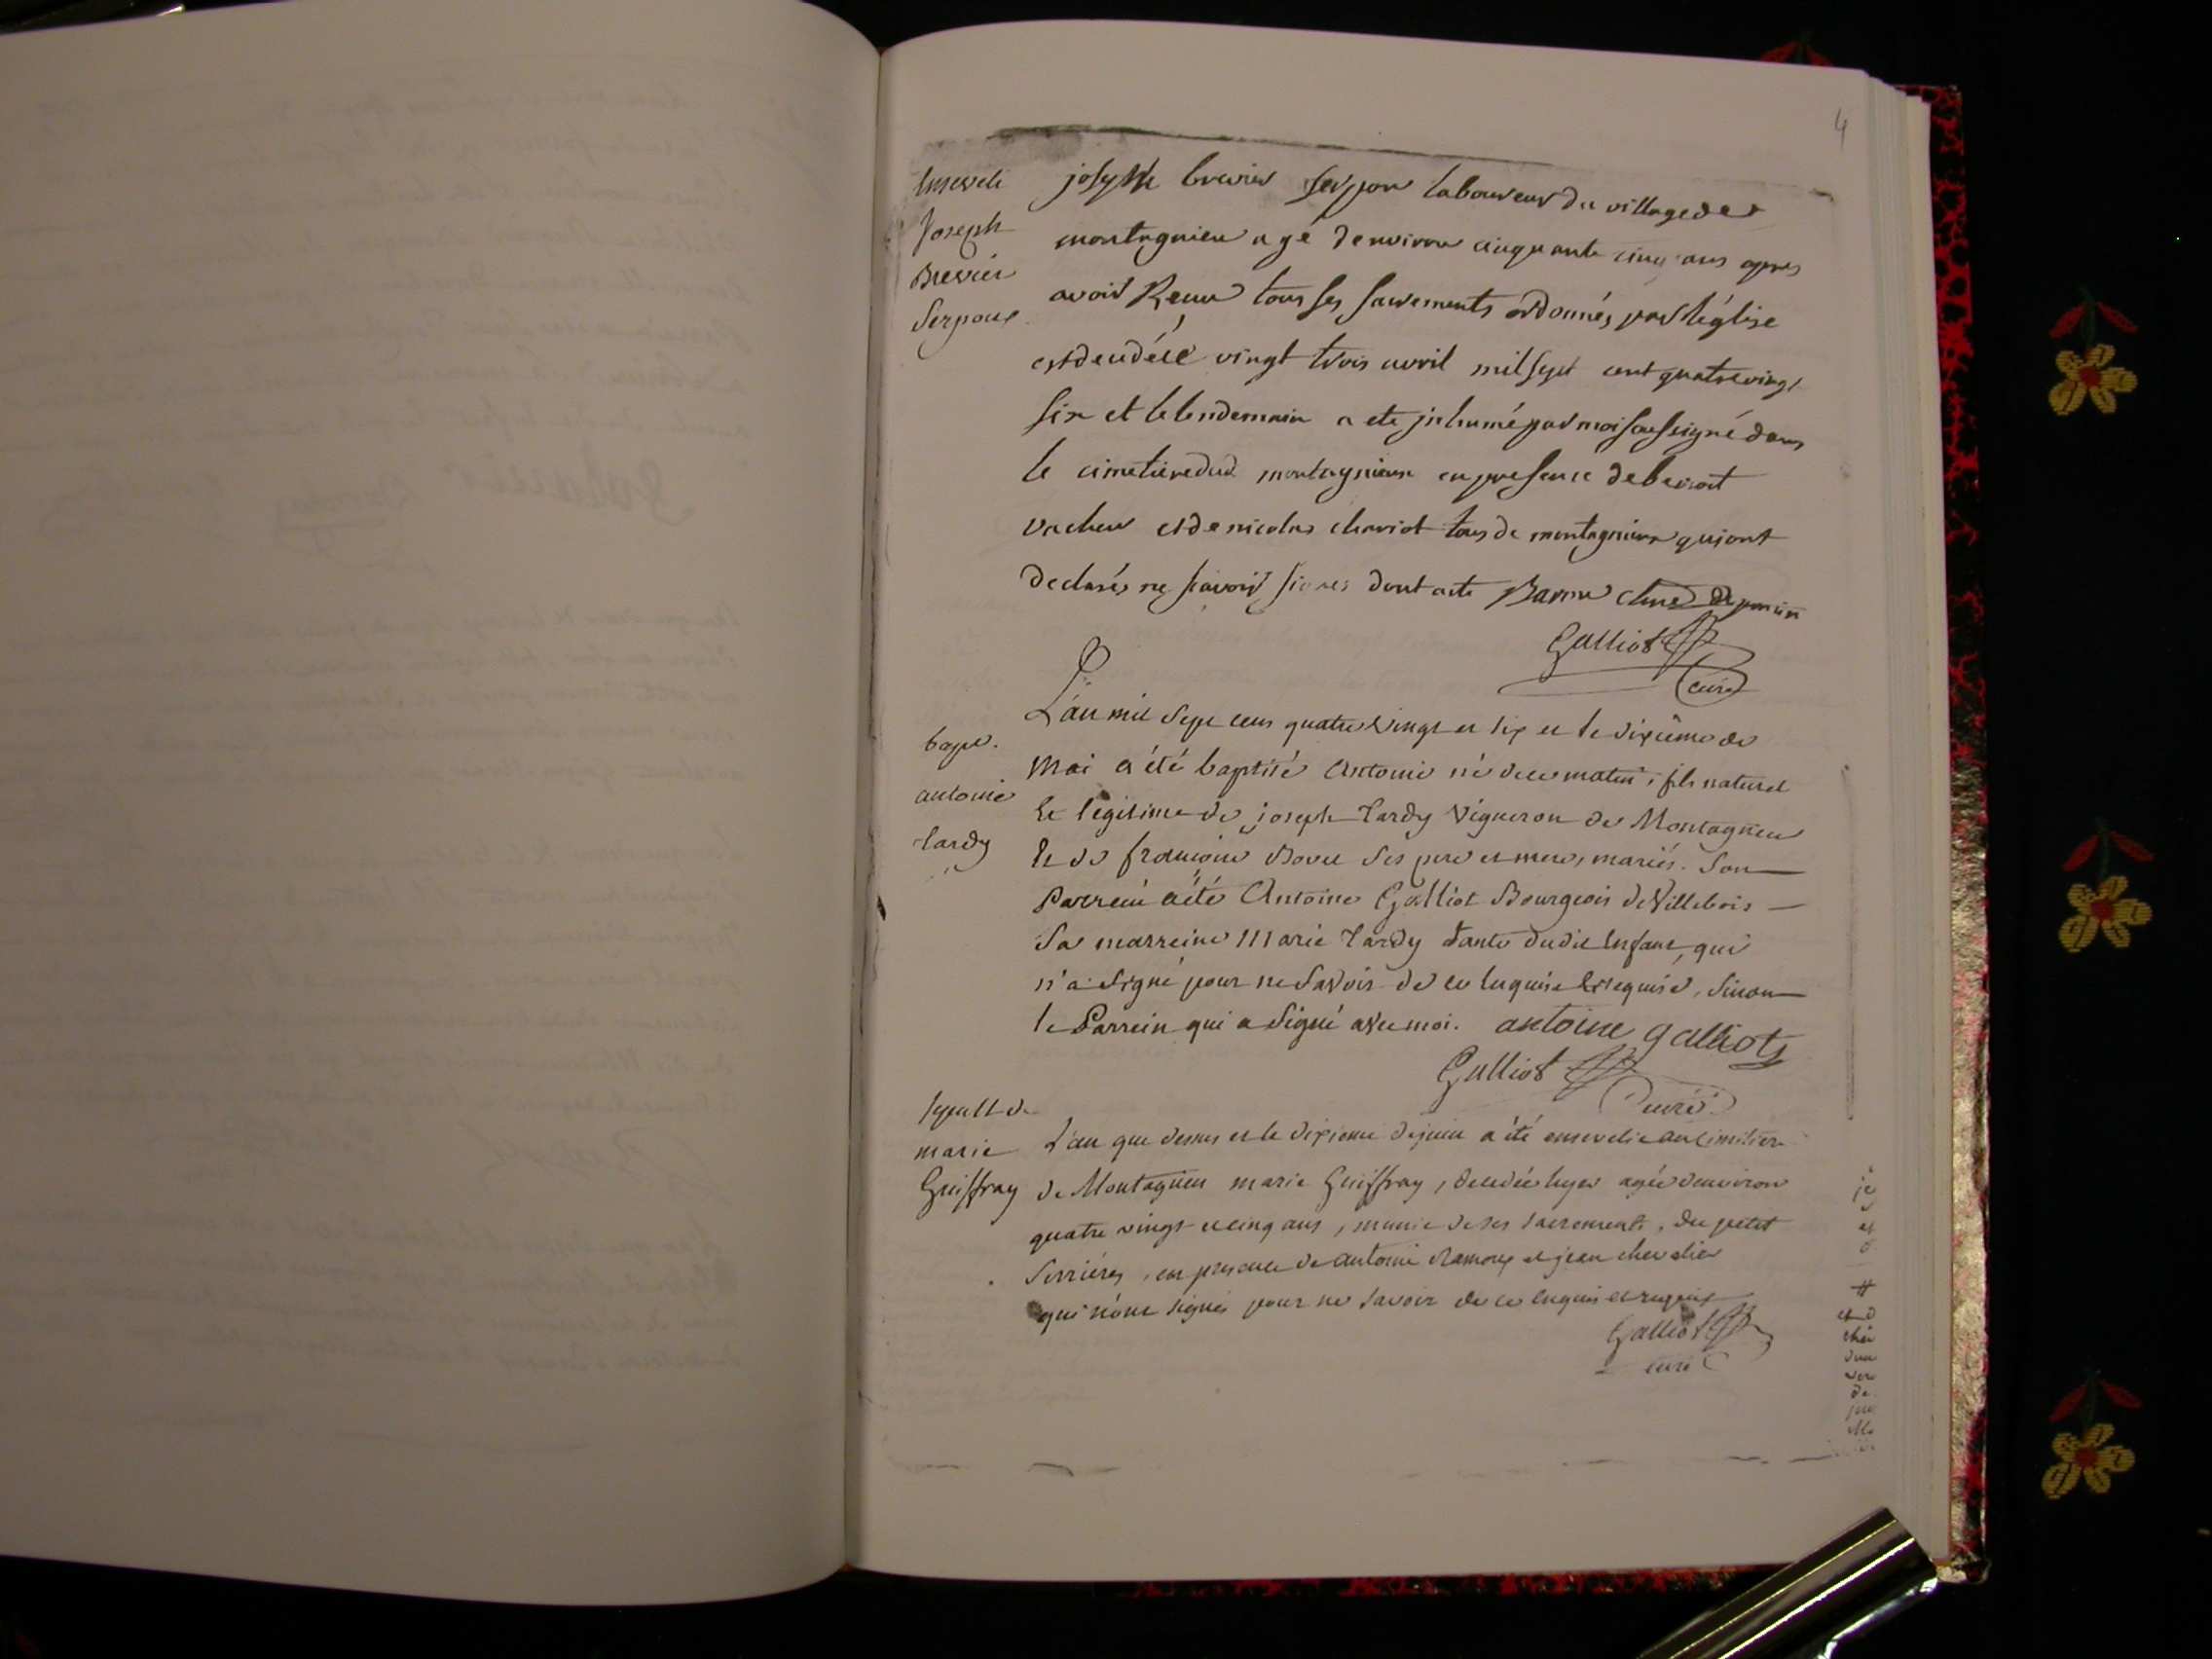 4
Enseveli
Joseph
Brevier
Serpoux
joseph brevier serpou laboureur du village de
montagnieu agé denviron cinquante cinq ans apres
avoir Reçu tous ses sacrements ordonnés par l'église
est decédé le vingt trois avril mil sept cent quatre vingt
six et le lendemain a ete jnhumé par moi soussigné dans
le cimetiere dud montagnieu en presence de benoit
vacher et de nicolas charriot tous de montagnieu qui ont
declarés ne scavoir signer dont acte
Galliot
curé
bapt.
antoine
tardy
L'an mil sept cens quatre vingt et six et le dixiême de
Mai a été baptisé Antoine né de ce matin, fils naturel
et legitime de joseph Tardy Vigneron de Montagnieu
et de françoise Bovet ses pere et mere, mariés. Son
Parrein a été Antoine Galliot Bourgeois de Villebois
Sa marreine Marie Tardy tante dudit Enfant, qui
n'a signé pour ne savoir de ce enquise et requise, sinon
le Parrein qui a signé avec moi. antoine galliot
Galliot
curé
sepult de
marie
Guiffray
L'an que dessus et le dixieme de juin a été ensevelie au cimitier
de Montagnieu marie Guiffray, decedée hyer agée d'environ
quatre vingt et cinq ans, munie de ses sacrements, du petit
Serriéres, en presence de antoine Ramoux et jean chevalier
qui n'ont signés pour ne savoir de ce enquis et requis
Galliot
curé